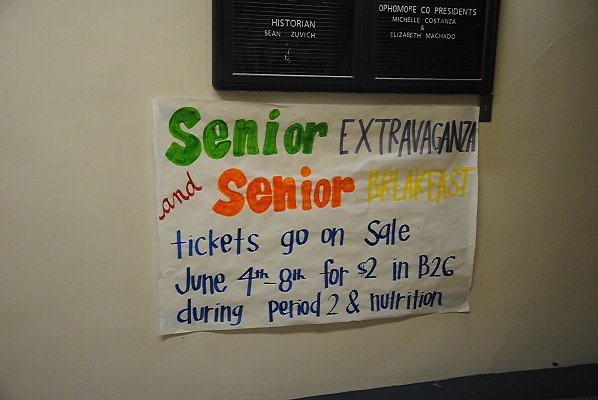 HISTORIAN
SEAN ZUVICH
OPHOMORE CO PRESIDENTS
MICHELLE COSTANZA
&
ELIZABETH MACHADO
Senior EXTRAVAGANZA
and Senior BREAKFAST
tickets go on Sale
June 4th-8th for $2 in B26
during period 2 & nutrition